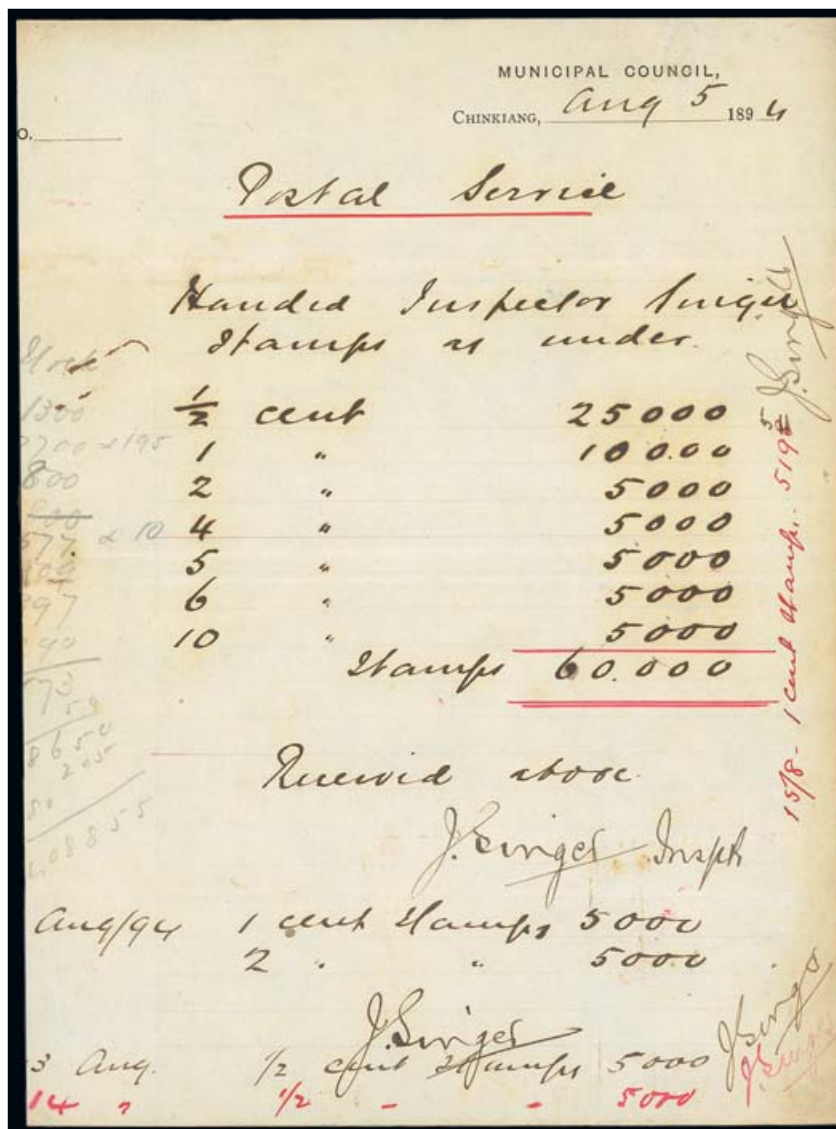 MUNICIPAL COUNCIL,
CHINKIANG, Aug 5 1894
o.
Postal Service
Handed Inspector Singer
Stamps as under.
½ cent 25000
1 " 10000
2 " 5000
4 " 5000
5 " 5000
6 " 5000
10 " 5000
Stamps 60.000
Received above
J. Singer Inspr
Aug/94 1 cent Stamps 5000
2 " " 5000
J. Singer
3 Aug. ½ cent Stamps 5000
14 " ½ - - 5000
J. Singer
J. Singer
15/8 - 1 cent Stamps.
J. Singer
Stock
1300
2700 195
800
577 10